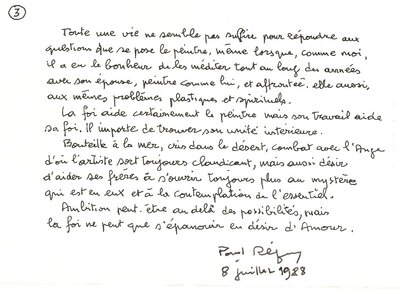 3
Toute une vie ne semble pas suffire pour répondre aux
questions que se pose le peintre, même lorsque, comme moi,
il a eu le bonheur de les méditer tout au long des années
avec son épouse, peintre comme lui, et affrontée, elle aussi,
aux mêmes problèmes plastiques et spirituels.
La foi aide certainement le peintre mais son travail aide
sa foi. Il importe de trouver son unité intérieure.
Bouteille à la mer, cris dans le désert, combat avec l'Ange
d'où l'artiste sort toujours claudicant, mais aussi désir
d'aider ses frères à s'ouvrir toujours plus au mystère
qui est en eux et à la contemplation de l'essentiel.
Ambition peut-être au delà des possibilités, mais
la foi ne peut que s'épanouir en désir d'Amour.
Paul
8 juillet 1988